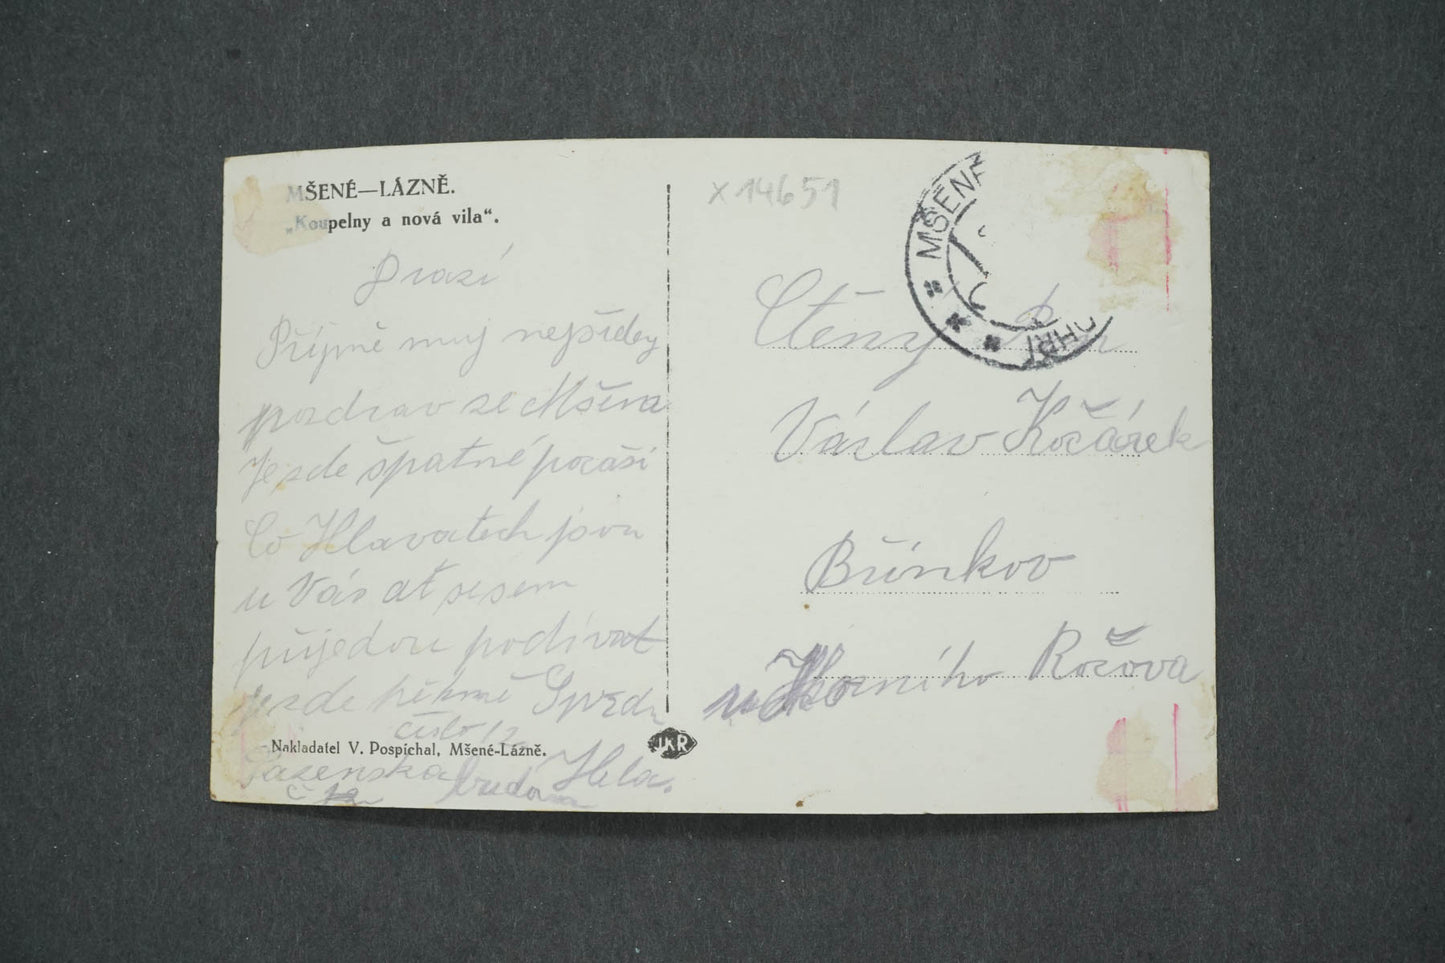 MŠENÉ—LÁZNĚ.
„Koupelny a nová vila“.
Drazí
Příjmě muj nejsrdeč
pozdrav ze Mšena
Je zde špatné počási
Co Hlavatech jsou
u Vás ať se sem
přijedou podívat
Je zde pěkně
číslo 12
Nakladatel V. Pospíchal, Mšené-Lázně.
JKR
x 14651
MŠENÉ
OHŘÍ
Ctěný Pan
Václav Kočárek
Bŕínkov
u Horního Ročova